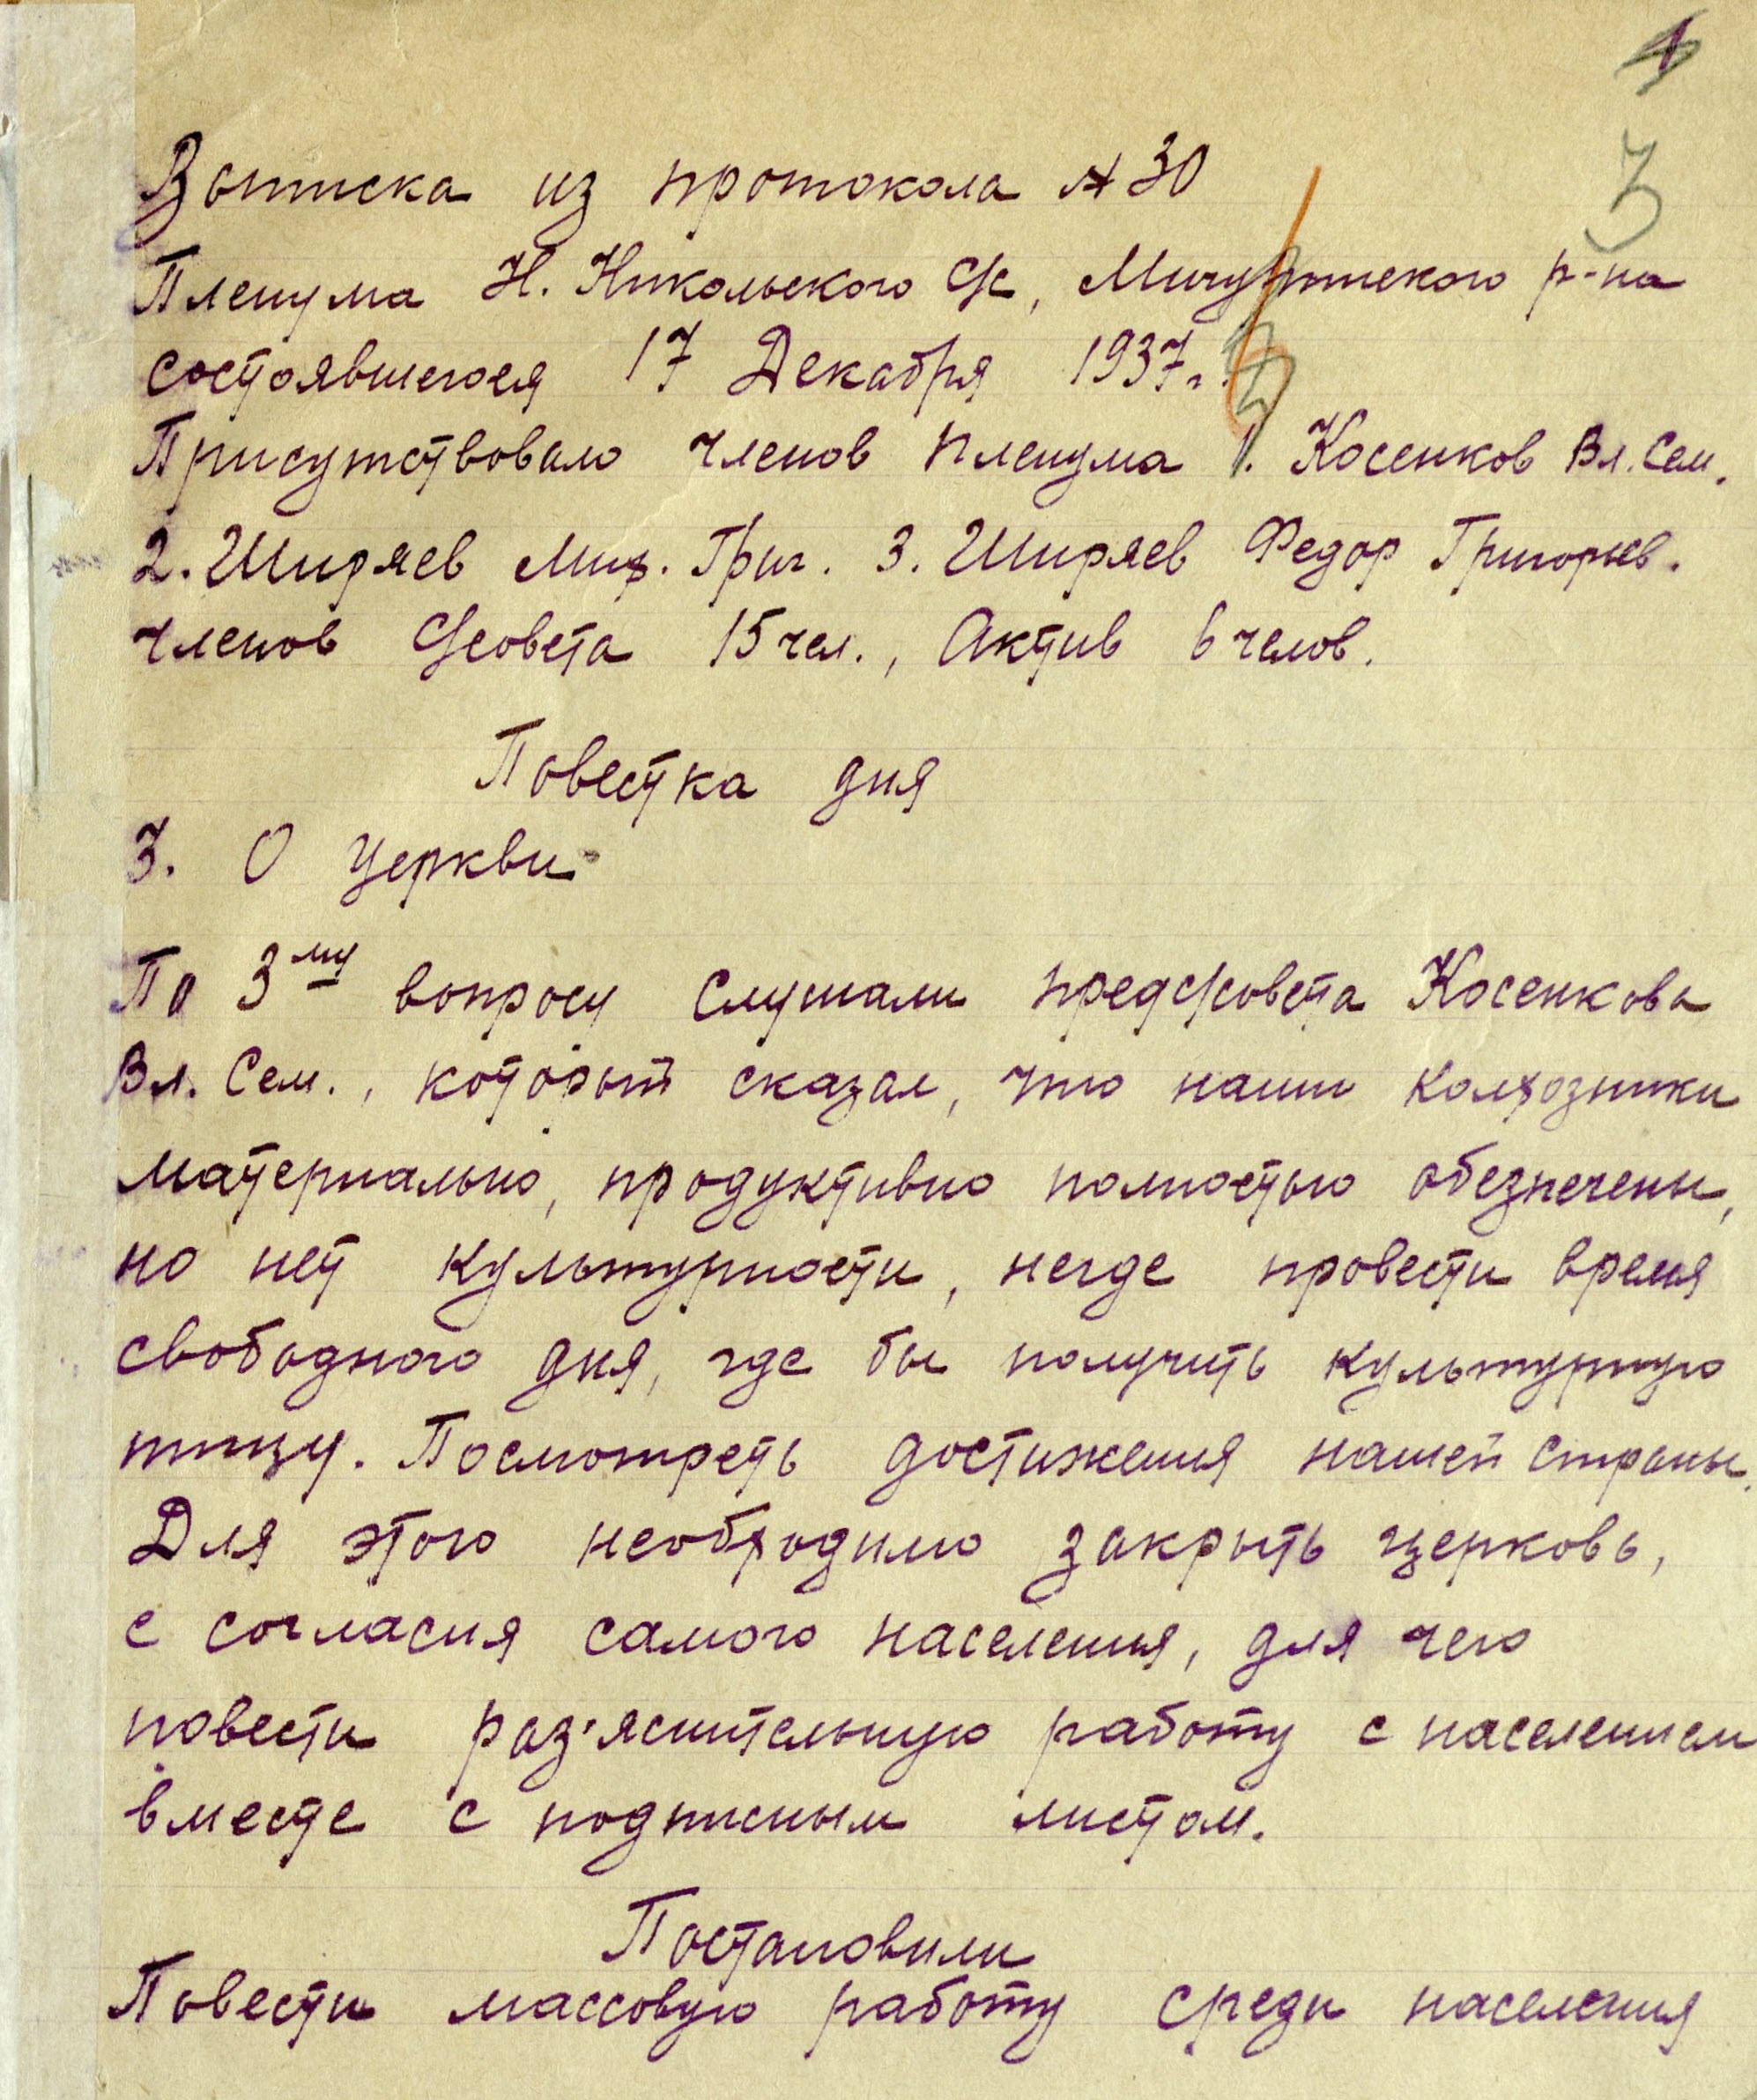 3
Выписка из протокола № 30
Пленума Н. Никольского С/с, Мичуринского р-на
состоявшегося 17 Декабря 1937 г.
Присутствовало членов пленума 1. Косенков Вл. Сем.
2. Ширяев Мих. Григ. 3. Ширяев Федор Григорьев.
членов С/совета 15 чел., Актив 6 челов.
Повестка дня
3. О церкви
По 3му вопросу слушали предс/совета Косенкова
Вл. Сем., который сказал, что наши колхозники
материально, продуктивно полностью обезпечены,
но нет культурности, негде провести время
свободного дня, где бы получить культурную
пищу. Посмотреть достижения нашей страны.
Для этого необходимо закрыть церковь,
с согласия самого населения, для чего
повести раз'яснительную работу с населением
вместе с подписным листом.
Постановили
Повести массовую работу среди населения